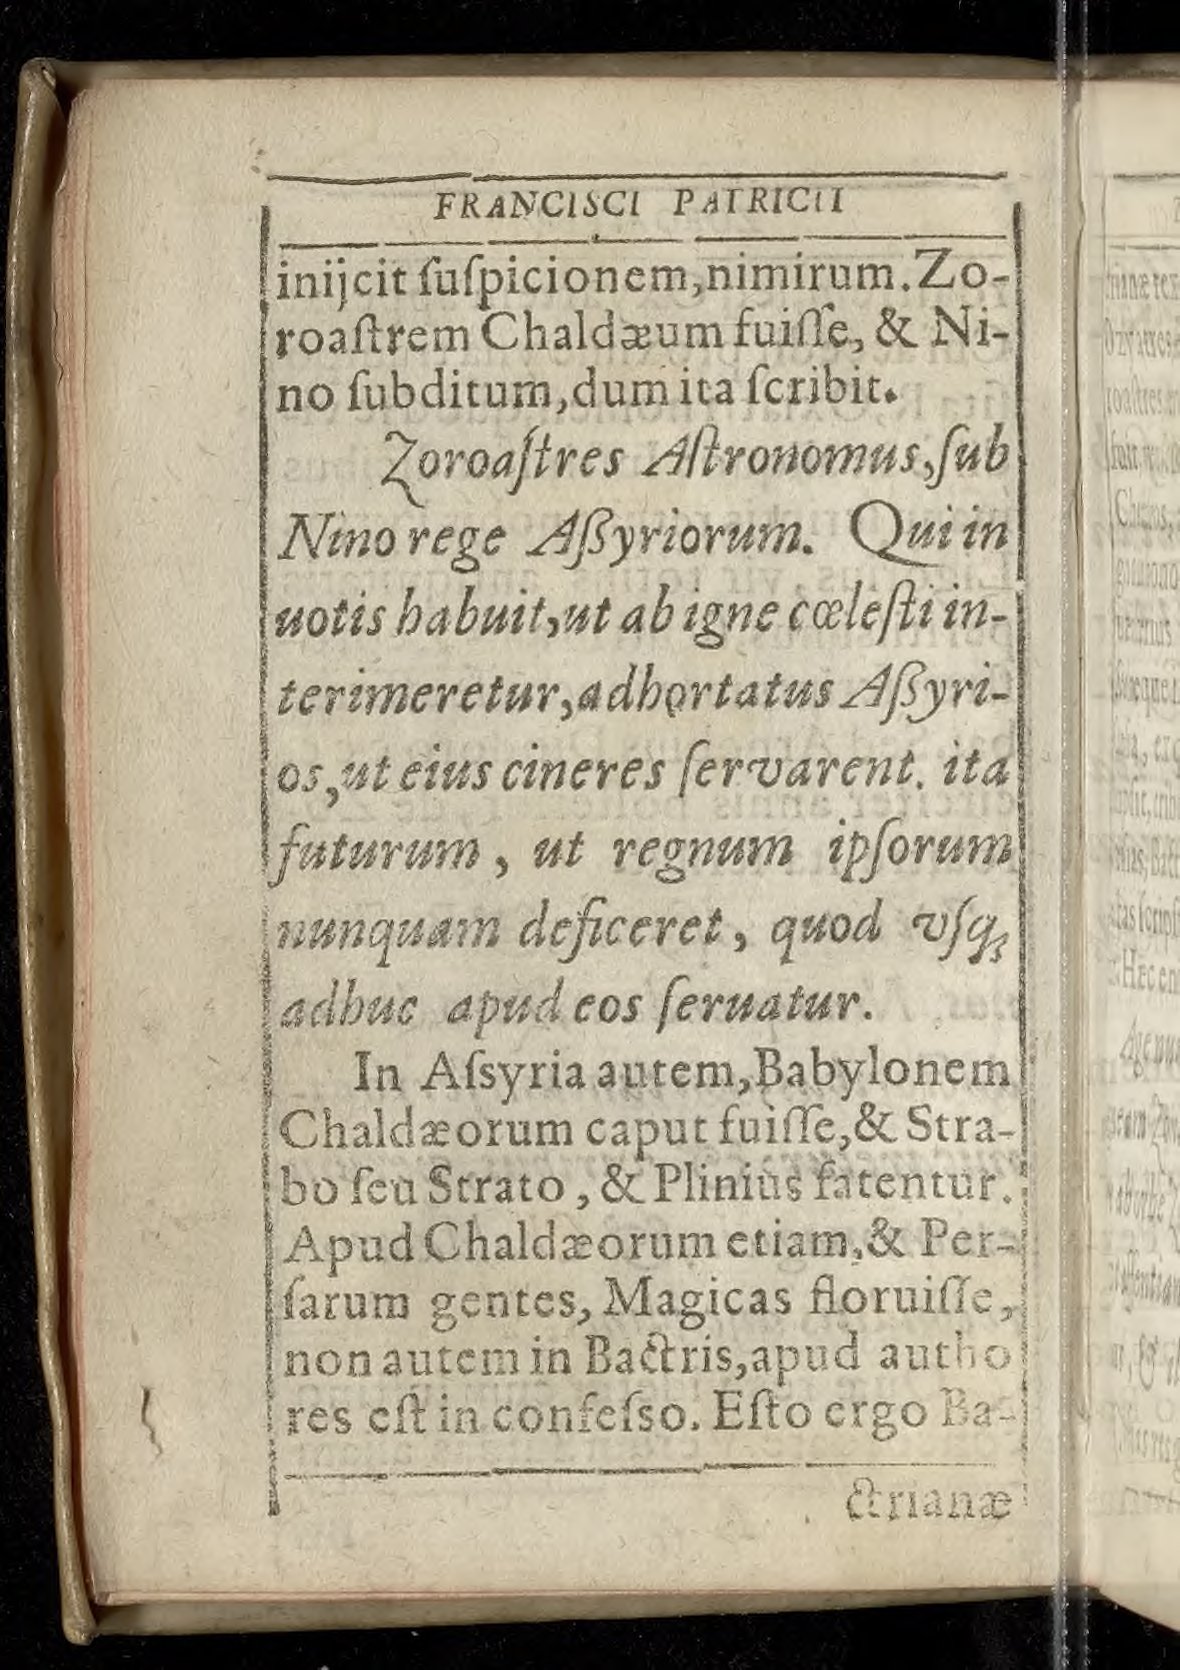 FRANCISCI PATRICII
inijcit ſuſpicionem, nimirum. Zo-
roaſtrem Chaldæum fuiſſe, & Ni-
no ſubditum, dum ita ſcribit.
Zoroaſtres Aſtronomus, ſub
Nino rege Aſßyriorum. Qui in
uotis habuit, ut ab igne cœleſti in-
terimeretur, adhortatus Aſßyri-
os, ut eius cineres ſervarent. ita
futurum, ut regnum ipſorum
nunquam deficeret, quod vſq;
adhuc apud eos ſeruatur.
In Aſsyria autem, Babylonem
Chaldæorum caput fuiſſe, & Stra-
bo ſeu Strato, & Plinius fatentur.
Apud Chaldæorum etiam, & Per-
ſarum gentes, Magicas floruiſſe,
non autem in Bactris, apud autho
res eſt in confeſso. Eſto ergo Ba-
ctrianæ